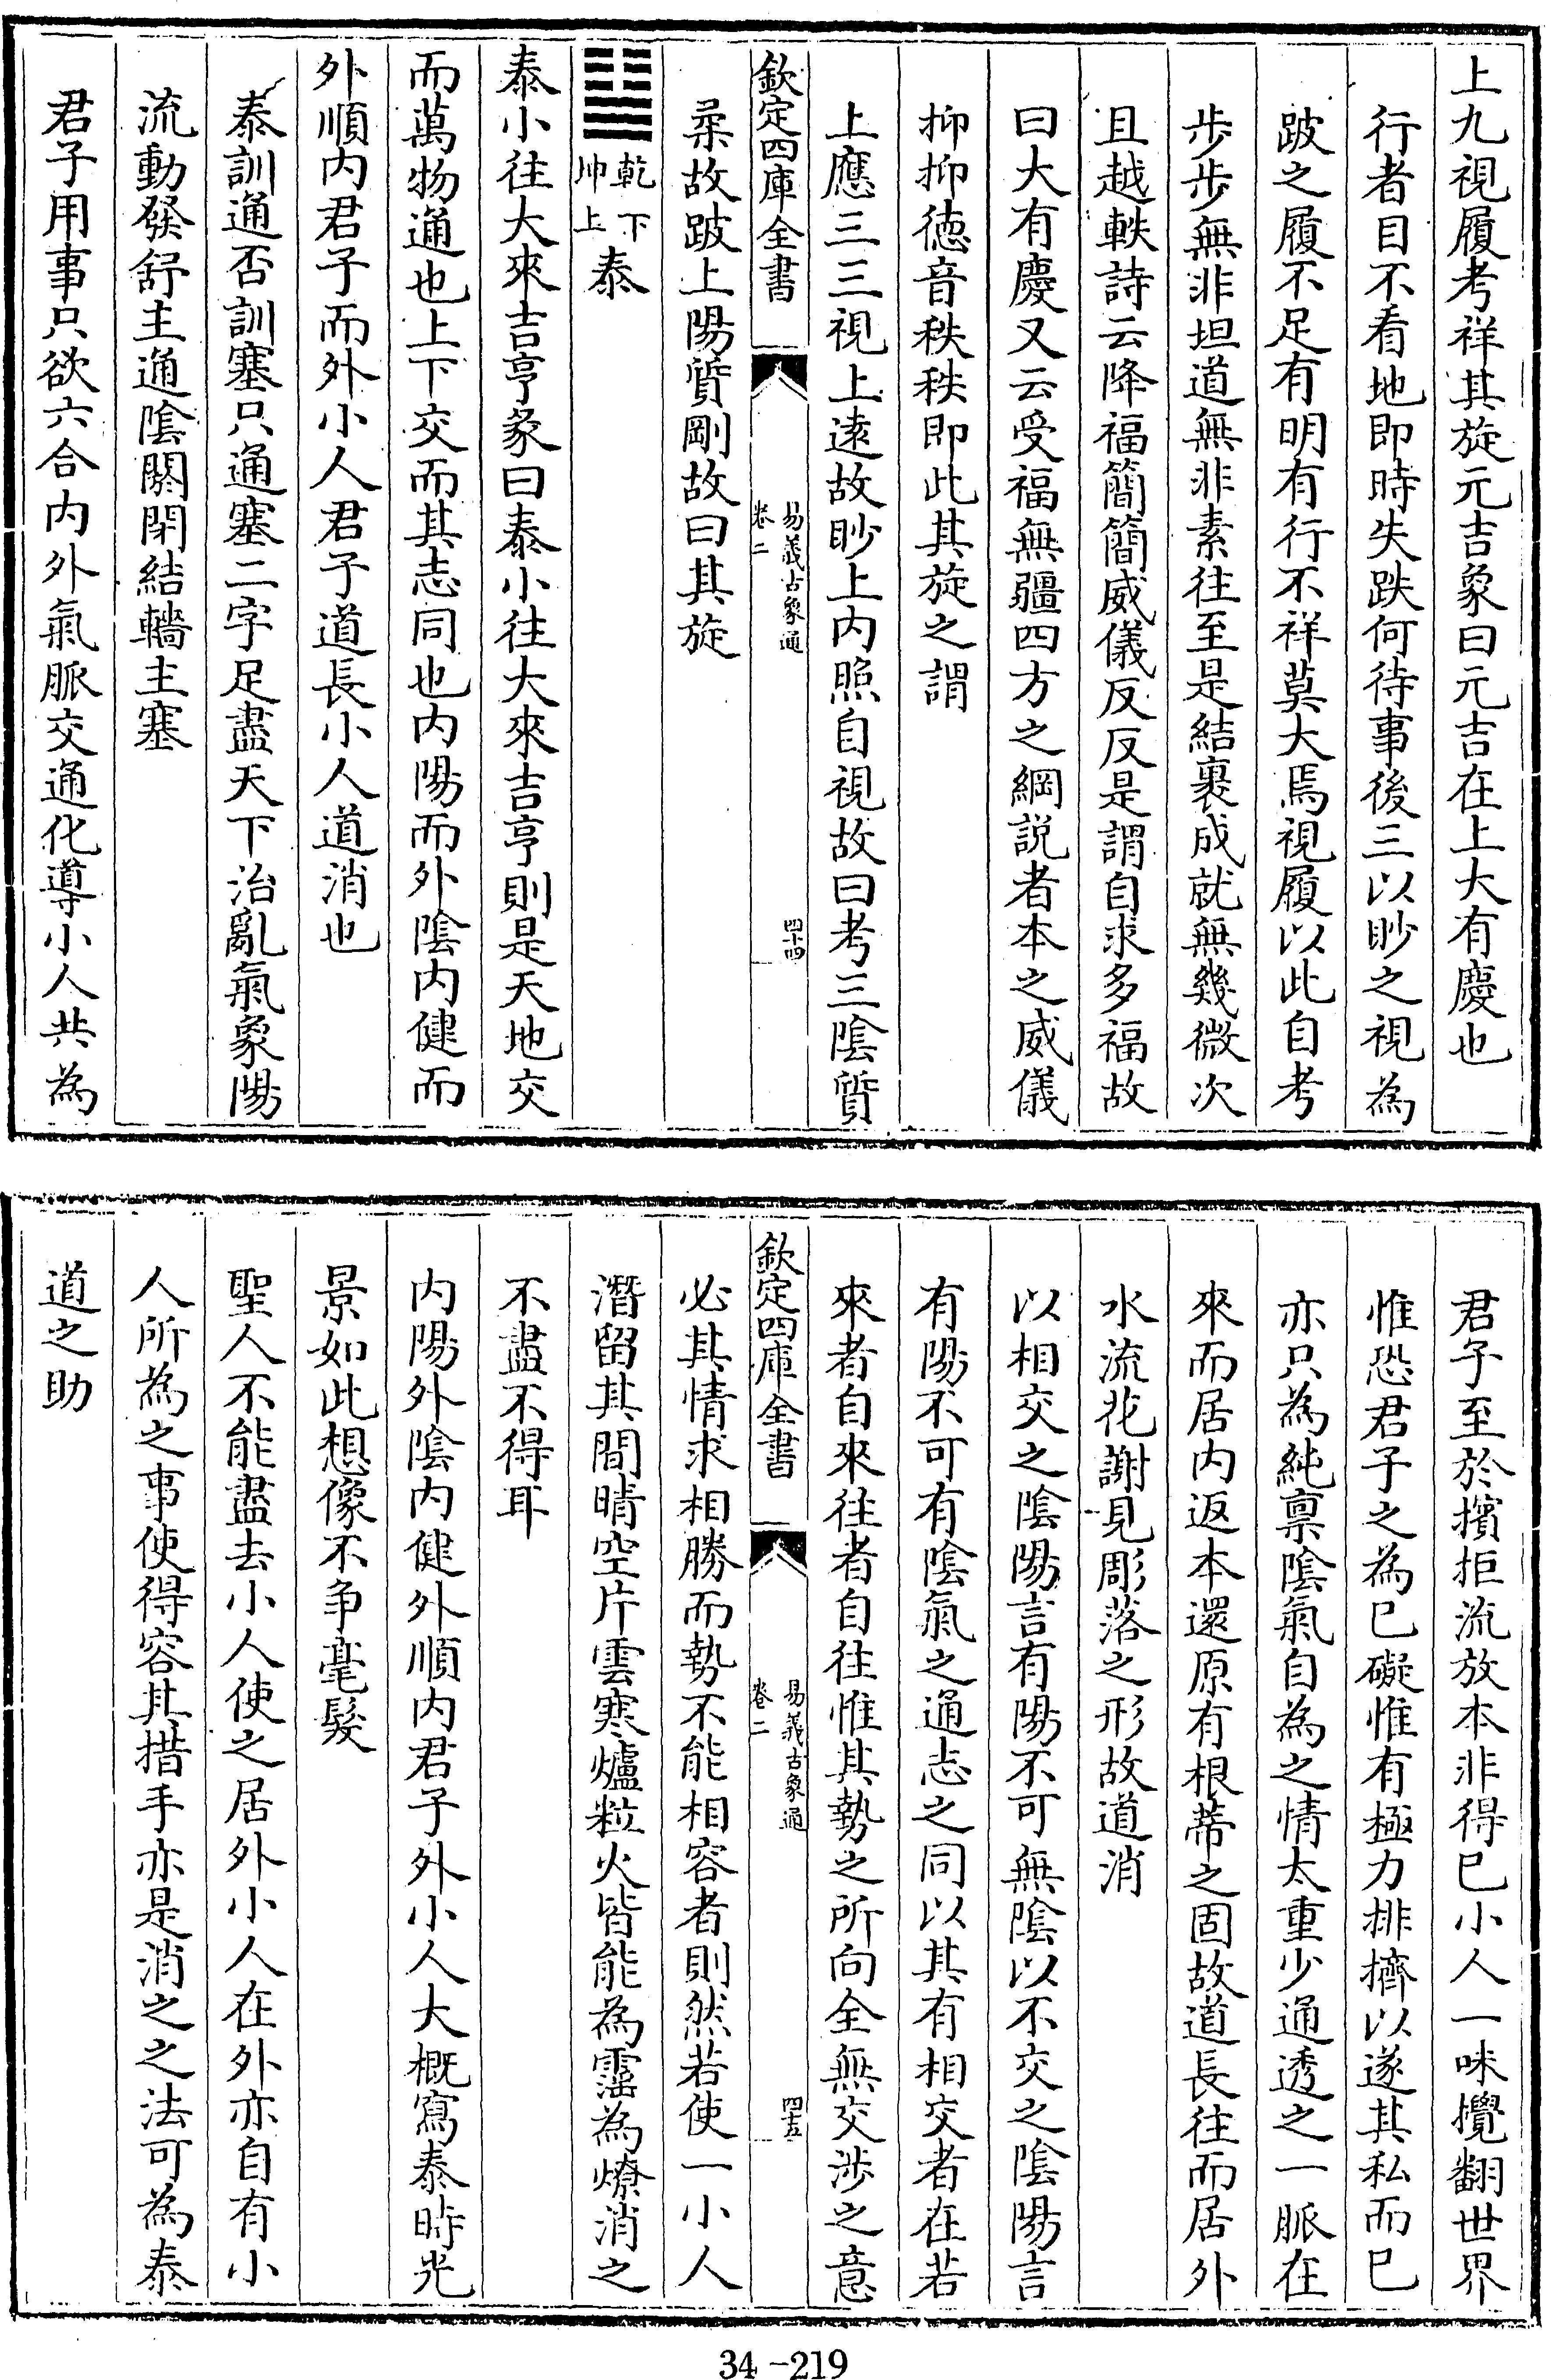 上九視履考祥其旋元吉象曰元吉在上大有慶也
行者目不看地即時失跌何待事後三以眇之視為
跛之履不足有明有行不祥莫大焉視履以此自考
步步無非坦道無非素往至是結裹成就無幾微次
且越軼詩云降福簡簡威儀反反是謂自求多福故
曰大有慶又云受福無疆四方之綱説者本之威儀
抑抑德音秩秩即此其旋之謂
上應三三視上逺故眇上内照自視故曰考三陰質
欽定四庫全書
易義古象通
卷二
四十四
柔故跛上陽質剛故曰其旋
乾下
坤上
泰
泰小往大來吉亨彖曰泰小往大來吉亨則是天地交
而萬物通也上下交而其志同也内陽而外陰内健而
外順内君子而外小人君子道長小人道消也
泰訓通否訓塞只通塞二字足盡天下治亂氣象陽
流動發舒主通陰闗閉結轖主塞
君子用事只欲六合内外氣脈交通化導小人共為
君子至於擯拒流放本非得已小人一味攪翻世界
惟恐君子之為已礙惟有極力排擠以遂其私而已
亦只為純禀陰氣自為之情太重少通透之一脈在
來而居内返本還原有根蒂之固故道長往而居外
水流花謝見彫落之形故道消
以相交之陰陽言有陽不可無陰以不交之陰陽言
有陽不可有陰氣之通志之同以其有相交者在若
來者自來往者自往惟其勢之所向全無交渉之意
欽定四庫全書
易義古象通
卷二
四十五
必其情求相勝而勢不能相容者則然若使一小人
潛留其間晴空片雲寒爐粒火皆能為霪為燎消之
不盡不得耳
内陽外陰内健外順内君子外小人大概寫泰時光
景如此想像不争毫髮
聖人不能盡去小人使之居外小人在外亦自有小
人所為之事使得容其措手亦是消之之法可為泰
道之助
34-219